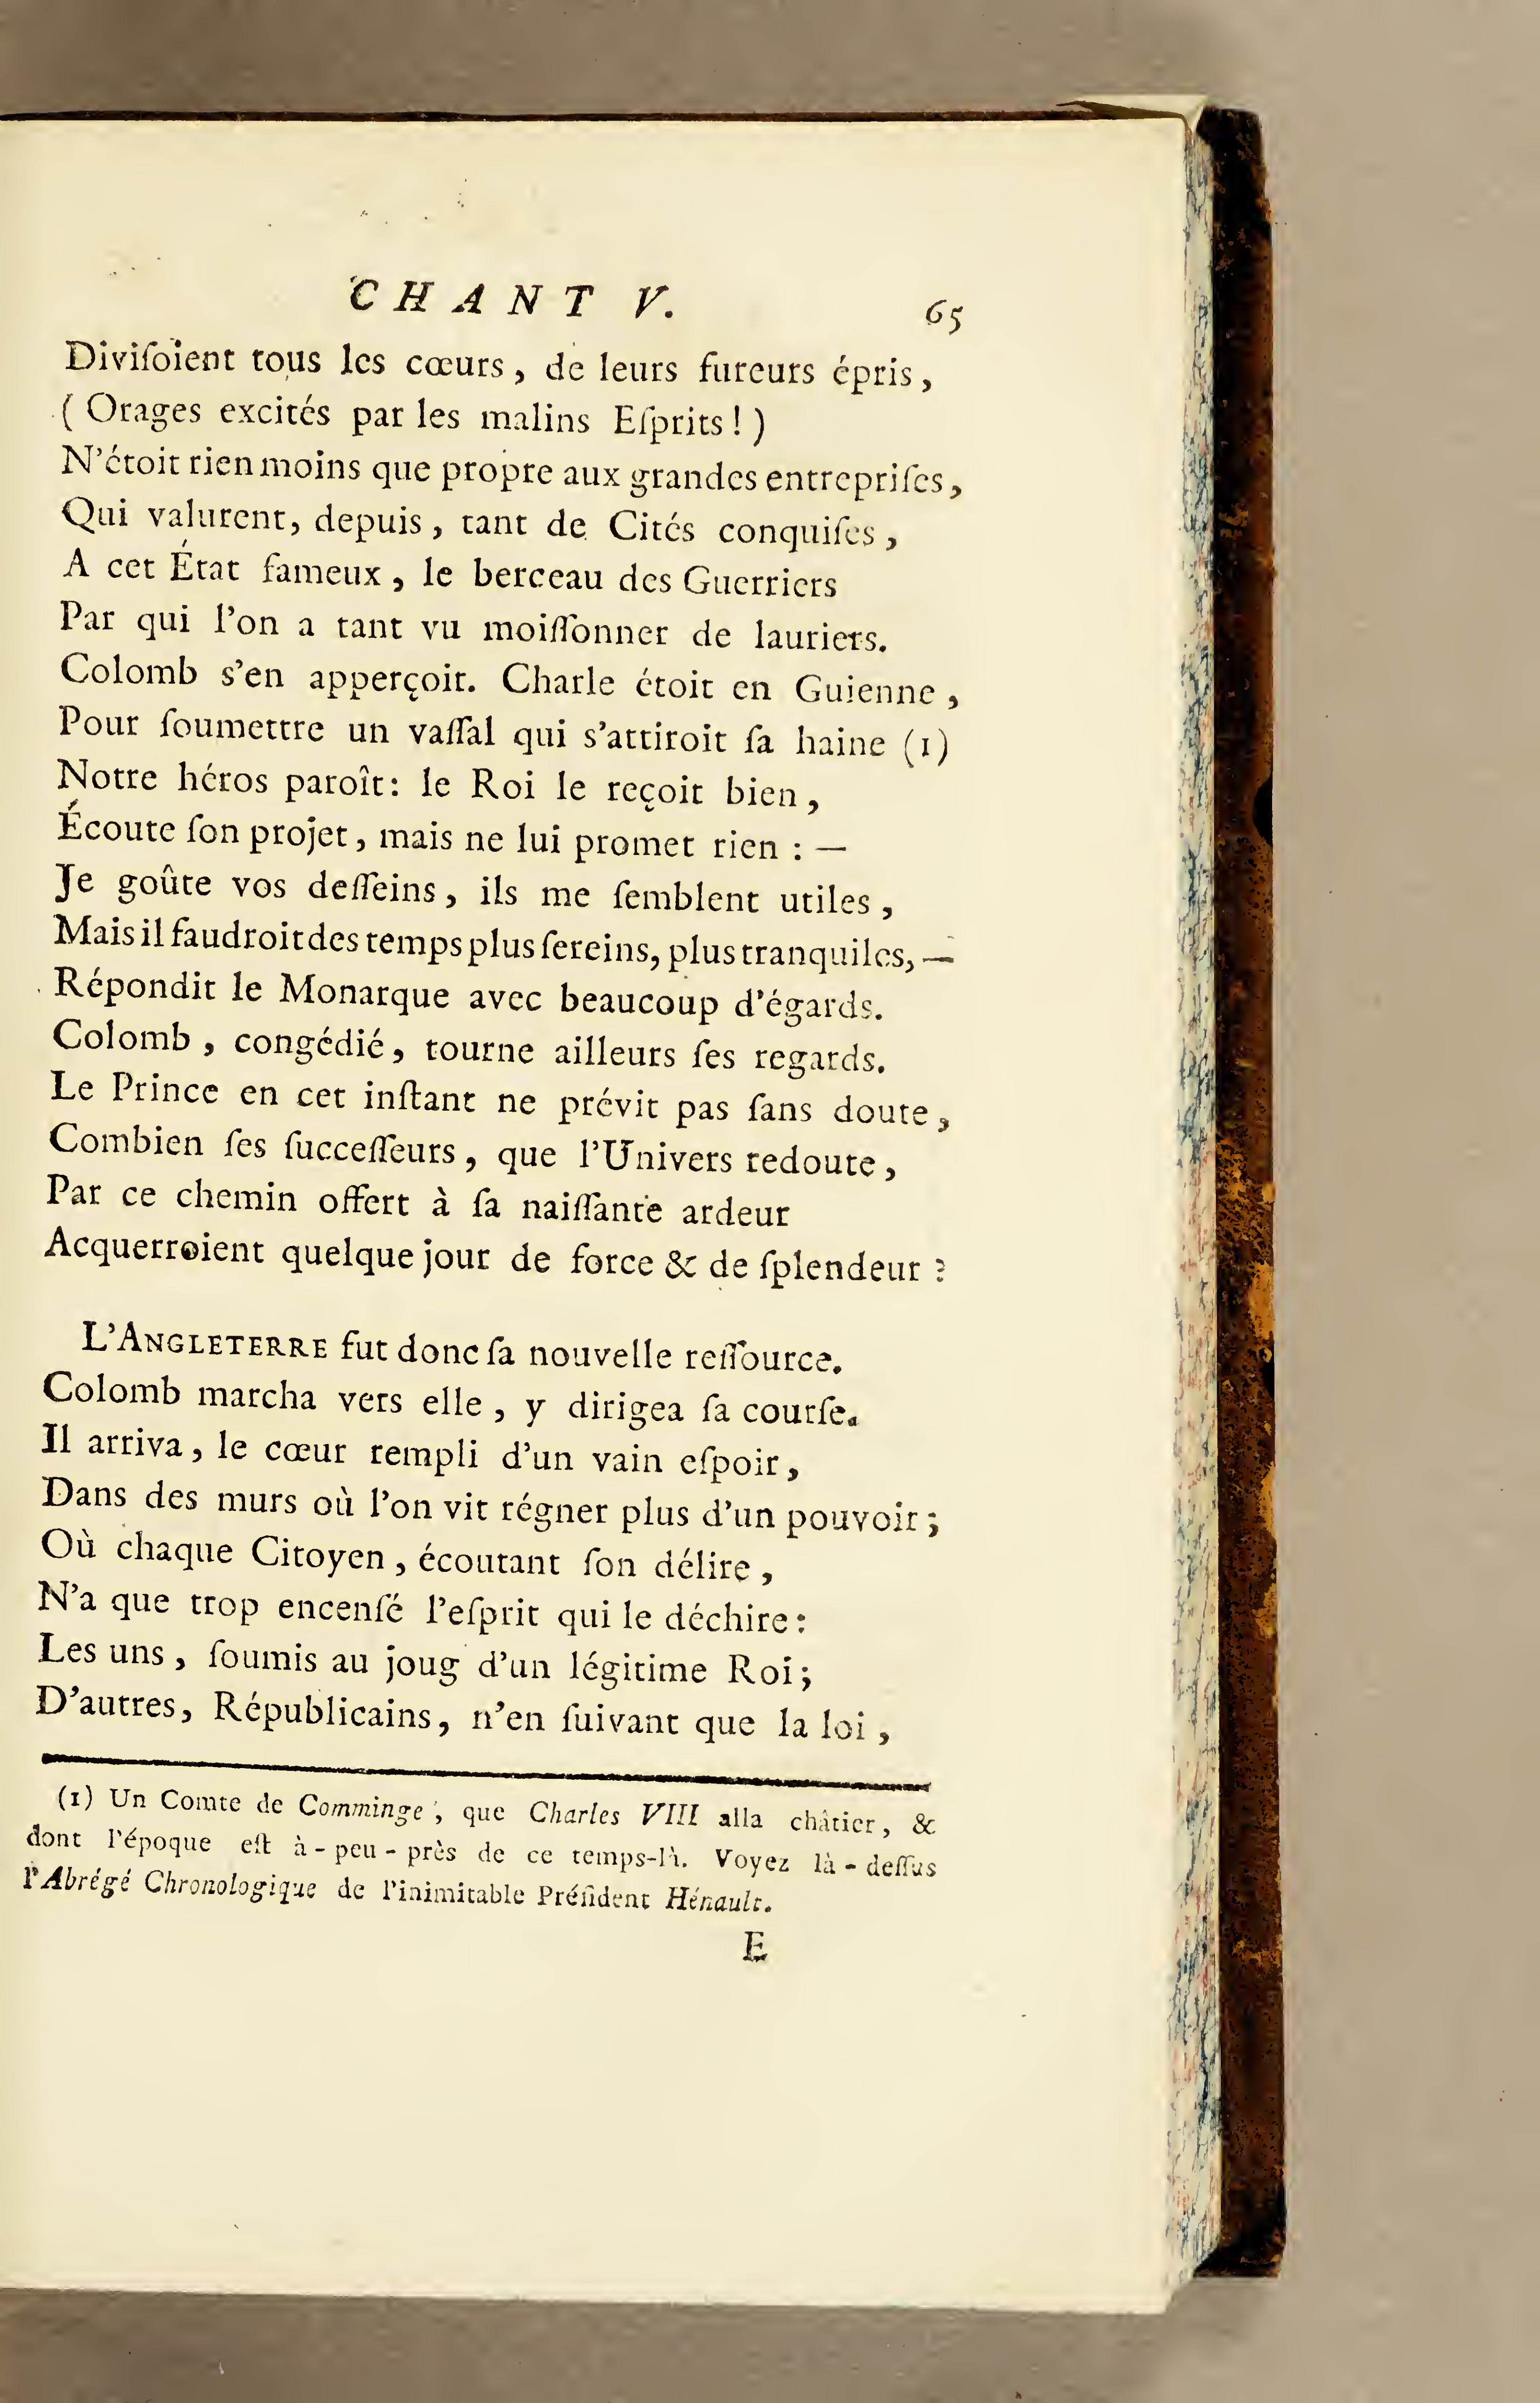 CHANT V. 65
Diviſoient tous les cœurs, de leurs fureurs épris,
( Orages excités par les malins Eſprits ! )
N'étoit rien moins que propre aux grandes entrepriſes,
Qui valurent, depuis, tant de Cités conquiſes,
A cet État fameux, le berceau des Guerriers
Par qui l'on a tant vu moiſſonner de lauriers.
Colomb s'en apperçoit. Charle étoit en Guienne,
Pour ſoumettre un vaſſal qui s'attiroit ſa haine (1)
Notre héros paroît: le Roi le reçoit bien,
Écoute ſon projet, mais ne lui promet rien : —
Je goûte vos deſſeins, ils me ſemblent utiles,
Mais il faudroit des temps plus ſereins, plus tranquiles, —
Répondit le Monarque avec beaucoup d'égards.
Colomb, congédié, tourne ailleurs ſes regards.
Le Prince en cet inſtant ne prévit pas ſans doute,
Combien ſes ſucceſſeurs, que l'Univers redoute,
Par ce chemin offert à ſa naiſſante ardeur
Acquerroient quelque jour de force & de ſplendeur ?
L'ANGLETERRE fut donc ſa nouvelle reſſource.
Colomb marcha vers elle, y dirigea ſa courſe.
Il arriva, le cœur rempli d'un vain eſpoir,
Dans des murs où l'on vit régner plus d'un pouvoir ;
Où chaque Citoyen, écoutant ſon délire,
N'a que trop encenſé l'eſprit qui le déchire :
Les uns, ſoumis au joug d'un légitime Roi ;
D'autres, Républicains, n'en ſuivant que la loi,
(1) Un Comte de Comminge, que Charles VIII alla châtier, &
dont l'époque eſt à-peu-près de ce temps-là. Voyez là-deſſus
l'Abrégé Chronologique de l'inimitable Préſident Hénault.
E